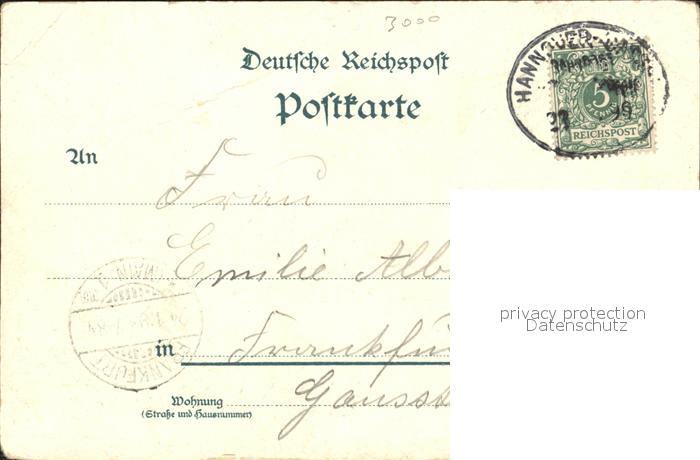 3000
Deutsche Reichspost
Postkarte
HANNOVER-
5
REICHSPOST
An
Frau
Emilie Alb
in Frankfu
Wohnung
(Straße und Hausnummer)
Gausss
FRANKFURT
MAIN
privacy protection
Datenschutz